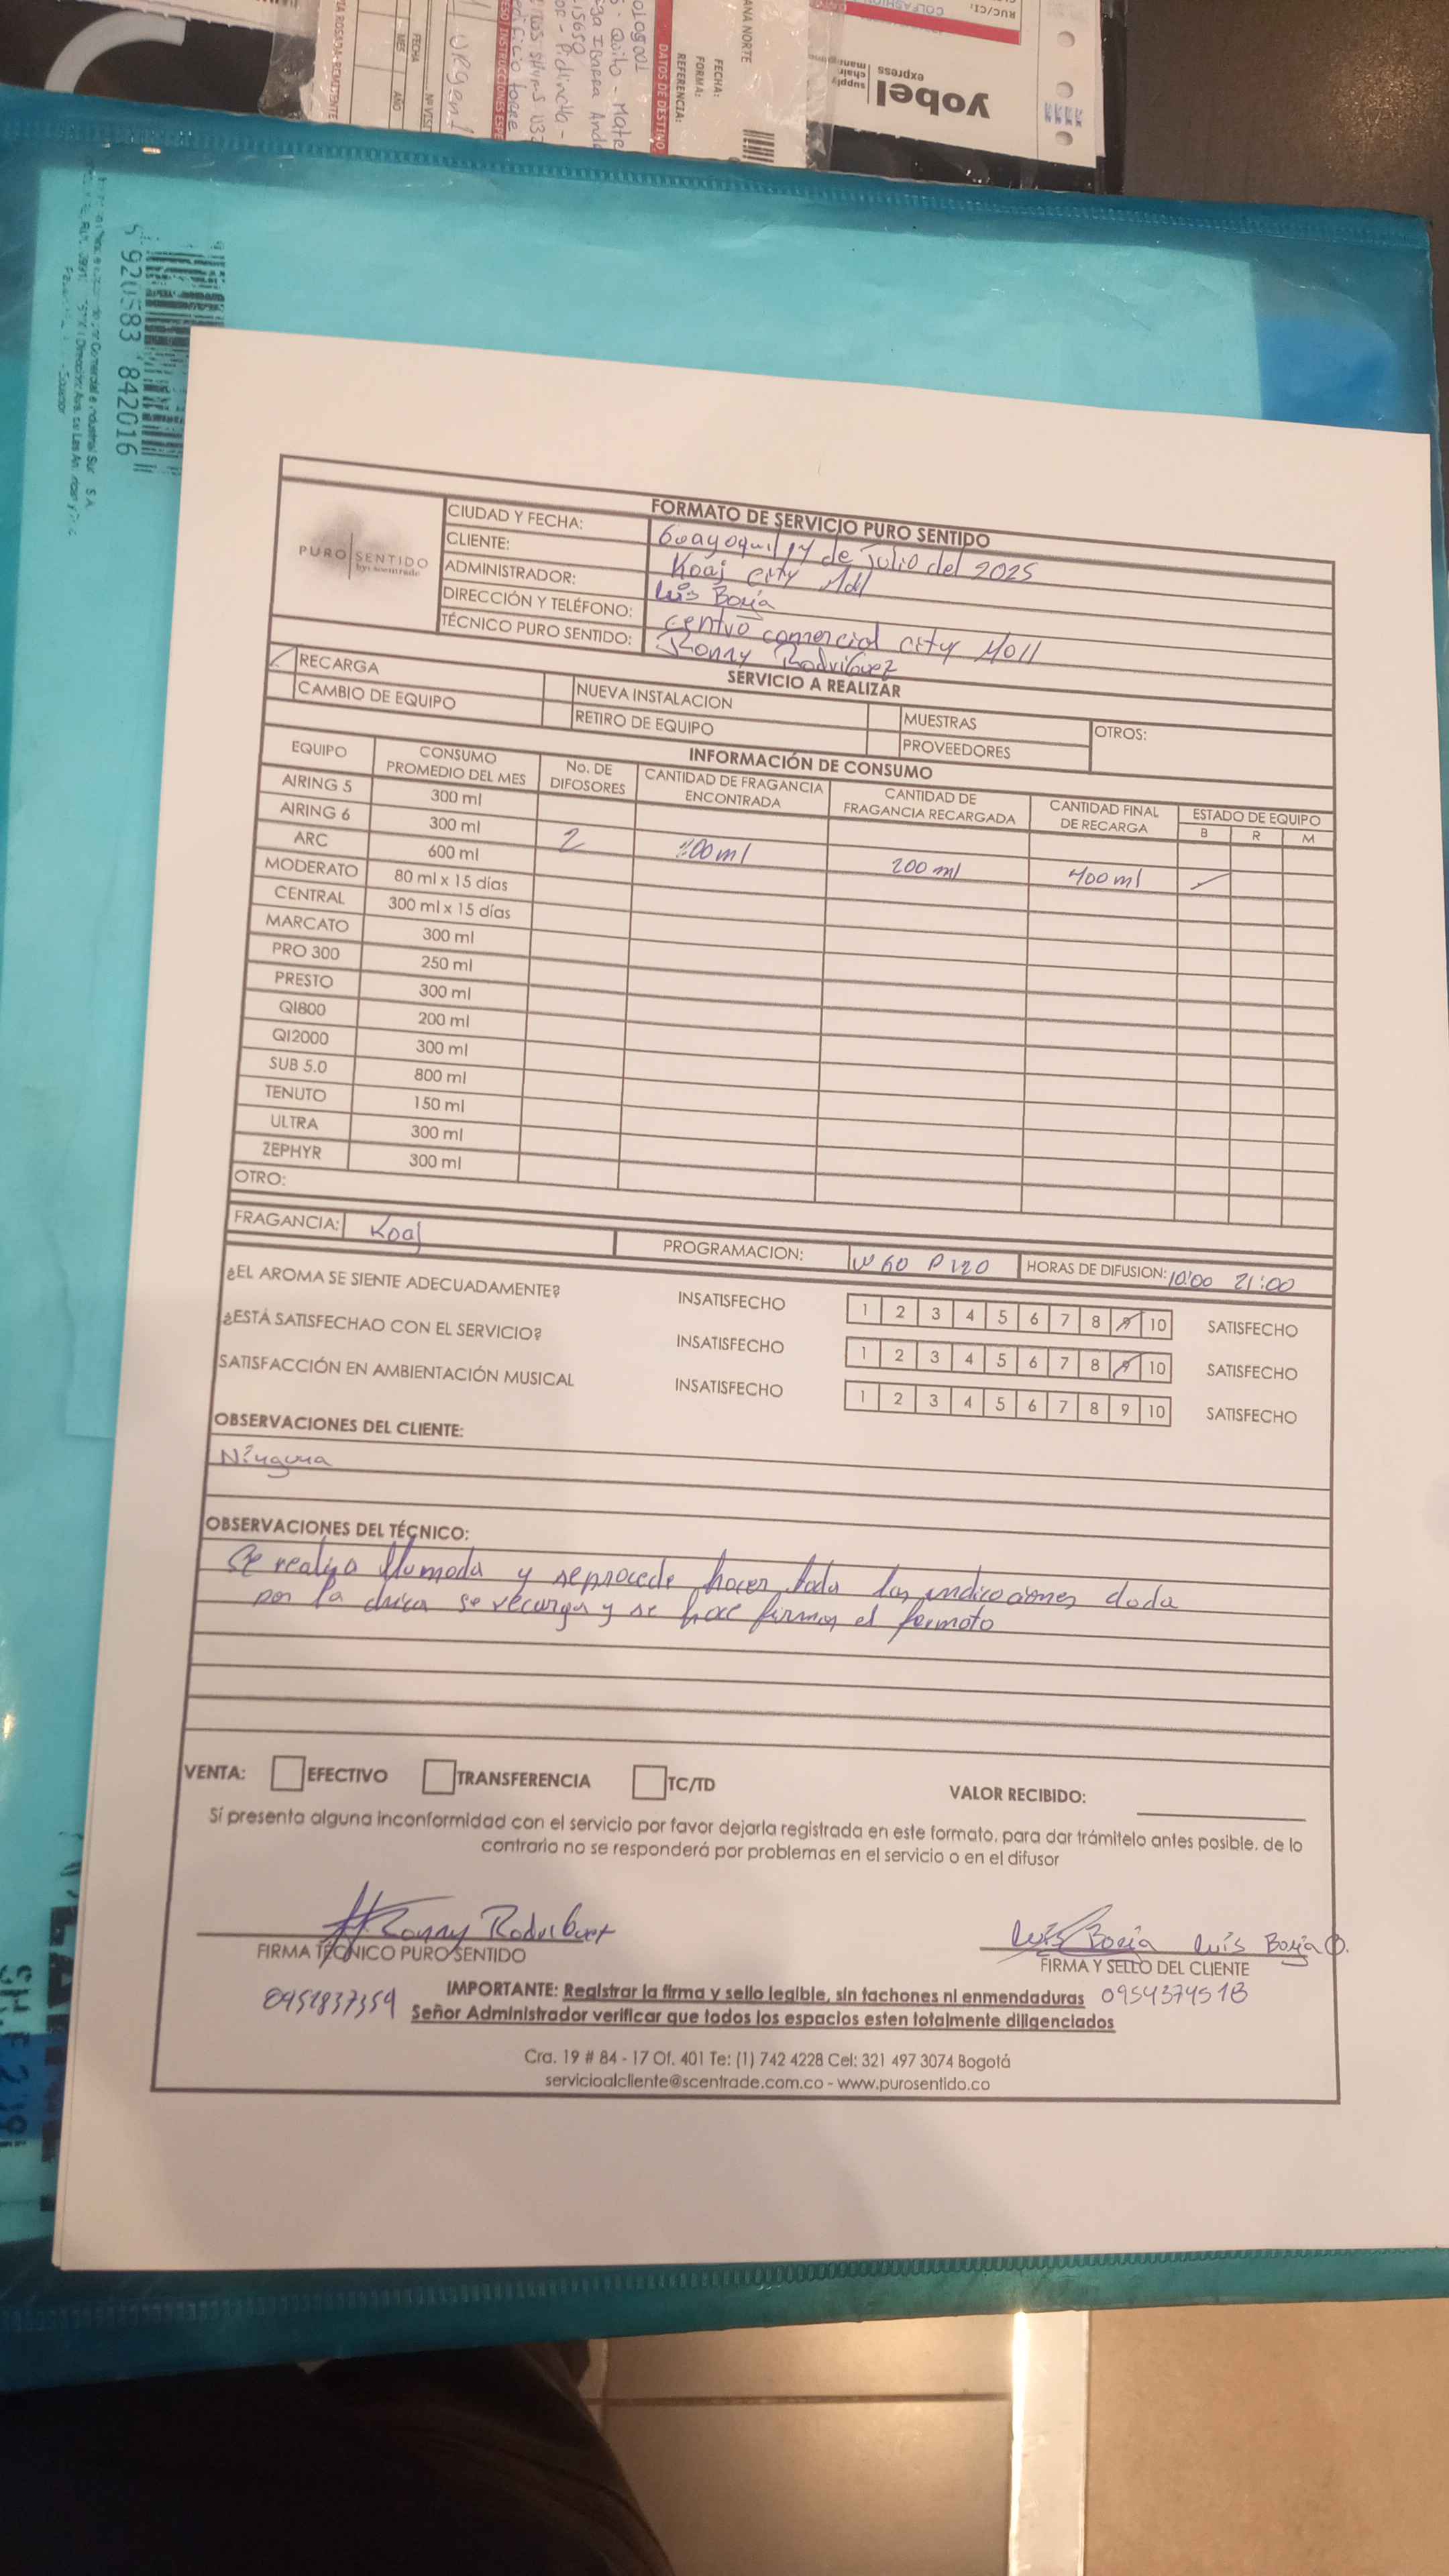 yobel
supply
chain
management
express
RUC/CI:
ANA NORTE
FECHA:
FORMA:
REFERENCIA:
DATOS DE DESTINO
FECHA
MES
AÑO
5 920583 842016
FORMATO DE SERVICIO PURO SENTIDO
PURO SENTIDO
by: scentrade
CIUDAD Y FECHA: Guayaquil 14 de Julio del 2025
CLIENTE: Koaj city Mall
ADMINISTRADOR: Luis Borja
DIRECCIÓN Y TELÉFONO: centro comercial city Moll
TÉCNICO PURO SENTIDO: Ronny Rodriguez
SERVICIO A REALIZAR
RECARGA NUEVA INSTALACION MUESTRAS OTROS:
CAMBIO DE EQUIPO RETIRO DE EQUIPO PROVEEDORES
INFORMACIÓN DE CONSUMO
EQUIPO CONSUMO PROMEDIO DEL MES No. DE DIFOSORES CANTIDAD DE FRAGANCIA ENCONTRADA CANTIDAD DE FRAGANCIA RECARGADA CANTIDAD FINAL DE RECARGA ESTADO DE EQUIPO
B R M
AIRING 5 300 ml
AIRING 6 300 ml
ARC 600 ml 2 200 ml 400 ml
MODERATO 80 ml x 15 días
CENTRAL 300 ml x 15 días
MARCATO 300 ml
PRO 300 250 ml
PRESTO 300 ml
QI800 200 ml
QI2000 300 ml
SUB 5.0 800 ml
TENUTO 150 ml
ULTRA 300 ml
ZEPHYR 300 ml
OTRO:
FRAGANCIA: Koaj PROGRAMACION: W 60 P 120 HORAS DE DIFUSION: 10:00 21:00
¿EL AROMA SE SIENTE ADECUADAMENTE? INSATISFECHO 1 2 3 4 5 6 7 8 9 10 SATISFECHO
¿ESTÁ SATISFECHAO CON EL SERVICIO? INSATISFECHO 1 2 3 4 5 6 7 8 9 10 SATISFECHO
SATISFACCIÓN EN AMBIENTACIÓN MUSICAL INSATISFECHO 1 2 3 4 5 6 7 8 9 10 SATISFECHO
OBSERVACIONES DEL CLIENTE:
Ninguna
OBSERVACIONES DEL TÉCNICO:
Se realiza llamada y se procede hacer toda las indicaciones dada
por la chica se recarga y se hace firmar el formato
VENTA: EFECTIVO TRANSFERENCIA TC/TD VALOR RECIBIDO:
Sí presenta alguna inconformidad con el servicio por favor dejarla registrada en este formato, para dar trámitelo antes posible, de lo
contrario no se responderá por problemas en el servicio o en el difusor
Ronny Rodriguez Luis Borja Luis Borja O.
FIRMA TÉCNICO PURO SENTIDO FIRMA Y SELLO DEL CLIENTE
IMPORTANTE: Registrar la firma y sello legible, sin tachones ni enmendaduras
0951837359 0954374518
Señor Administrador verificar que todos los espacios esten totalmente diligenciados
Cra. 19 # 84 - 17 Of. 401 Te: (1) 742 4228 Cel: 321 497 3074 Bogotá
servicioalcliente@scentrade.com.co - www.purosentido.co